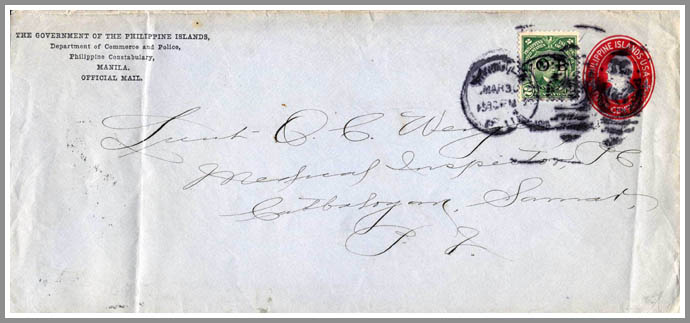 THE GOVERNMENT OF THE PHILIPPINE ISLANDS,
Department of Commerce and Police,
Philippine Constabulary,
MANILA.
OFFICIAL MAIL.
PHILIPPINE ISLANDS U.S.A
O.B.
MAR 30
Lieut. O. C.
Medical Inspector, P.C.
Catbalogan, Samar,
P. I.